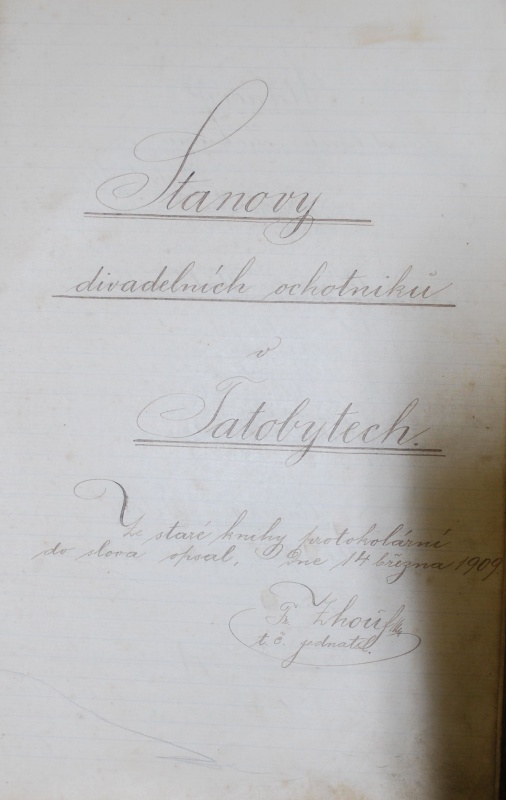 Stanovy
divadelních ochotníků
v
Tatobytech.
Ze staré knihy protokolární
do slova opsal, dne 14 března 1909
Fr. Zhouf
t. č. jednatel.